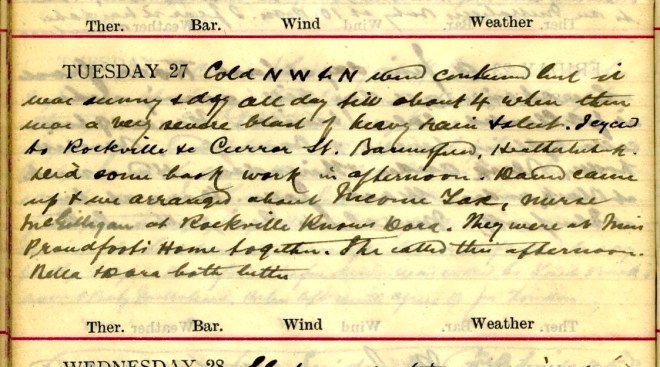 Ther. Bar. Wind Weather
TUESDAY 27 Cold NW & N wind continued but it
was sunny & dry all day till about 4 when there
was a very severe blast of heavy rain & sleet. I cycled
to Rockville & Curror St.
did some book work in afternoon. David came
up & we arranged about Income Tax, nurse
McGilligan at Rockville knows Dora. They were at Miss
Proudfoots Home together. She called this afternoon.
Bella & Dora both better
Ther. Bar. Wind Weather
WEDNESDAY 28